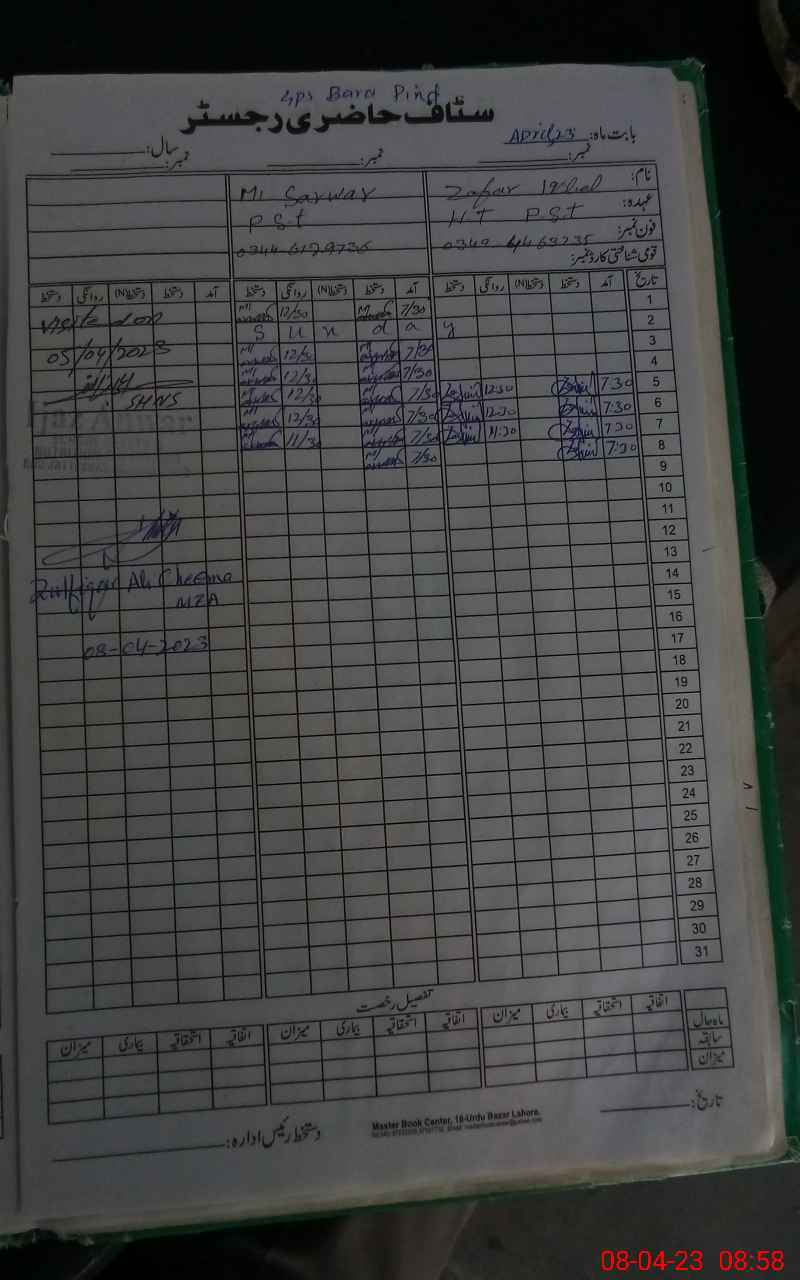 Gps Bara Pind
سٹاف حاضری رجسٹر
بابت ماہ: April,23
سال:
نمبر: نمبر: نمبر:
نام: Zafar Iqbal M. Sarwar
عہدہ: HT P.S.t P.S.t
فون نمبر: 0344
قومی شناختی کارڈ نمبر:
تاریخ آمد دستخط دستخط(N) روانگی دستخط آمد دستخط دستخط(N) روانگی دستخط آمد دستخط دستخط(N) روانگی دستخط
1 7/30 12/30
2 S u n d a y
3 7/30 12/30
4 7/30 12/30
5 7:30 12:30 7/30 12/30
6 7:30 12:30 7/30 12/30
7 7:30 11:30 7/30 11/30
8 7:30 7/30
9
10
11
12
13
14
15
16
17
18
19
20
21
22
23
24
25
26
27
28
29
30
31
Visited on
05/04/2023
SHNS
Zulfiqar Ali Cheema
08-04-2023
تفصیل رخصت
اتفاقیہ استحقاقیہ بیماری میزان اتفاقیہ استحقاقیہ بیماری میزان اتفاقیہ استحقاقیہ بیماری میزان
ماہ حال
سابقہ
میزان
تاریخ:
Master Book Center, 18-Urdu Bazar Lahore.
دستخط رئیس ادارہ:
08-04-23 08:58